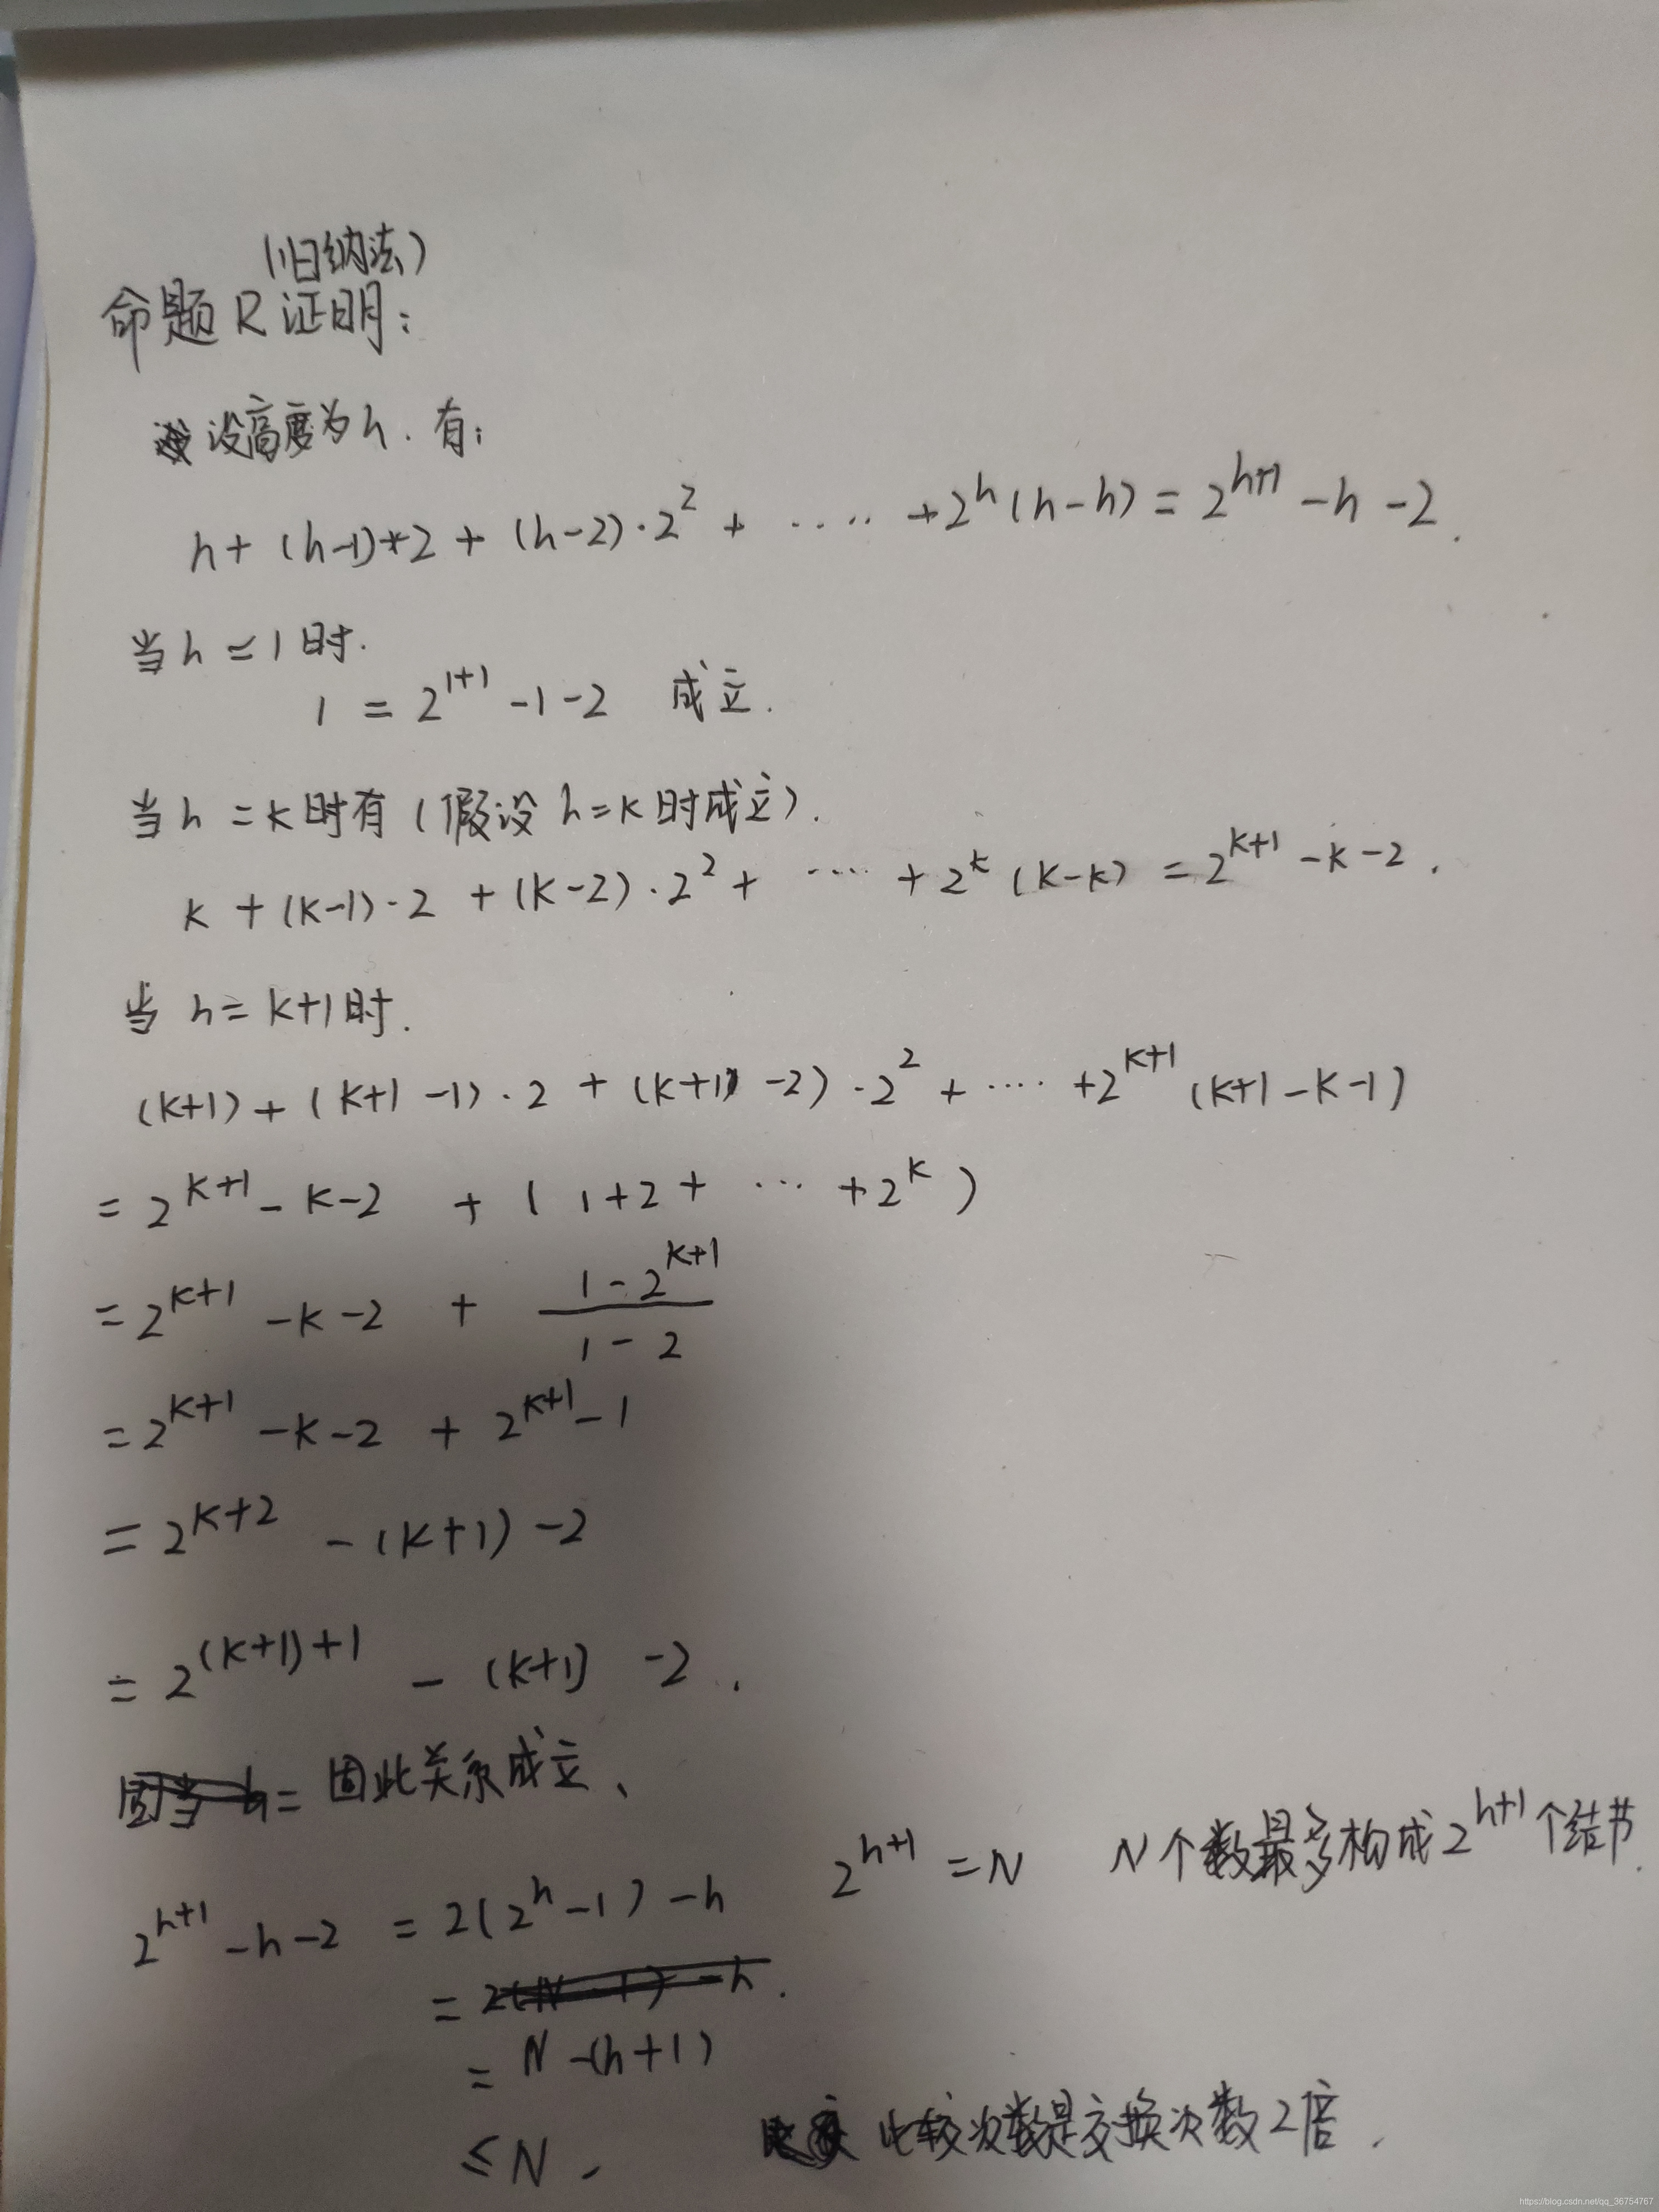 (归纳法)
命题R证明:
设高度为h.有:
h+(h-1)*2+(h-2)·2^2+····+2^h(h-h)=2^{h+1}-h-2.
当h=1时.
1=2^{1+1}-1-2 成立.
当h=k时有(假设h=k时成立).
k+(k-1)·2+(k-2)·2^2+····+2^k(k-k)=2^{k+1}-k-2.
当h=k+1时.
(k+1)+(k+1-1)·2+(k+1-2)·2^2+····+2^{k+1}(k+1-k-1)
=2^{k+1}-k-2+(1+2+···+2^k)
=2^{k+1}-k-2+\frac{1-2^{k+1}}{1-2}
=2^{k+1}-k-2+2^{k+1}-1
=2^{k+2}-(k+1)-2
=2^{(k+1)+1}-(k+1)-2.
因此关系成立、
2^{h+1}=N N个数最多构成2^{h+1}个结节.
2^{h+1}-h-2=2(2^h-1)-h
=2(N-1)-h.
=N-(h+1)
≤N.
比较次数是交换次数2倍.
https://blog.csdn.net/qq_36754767